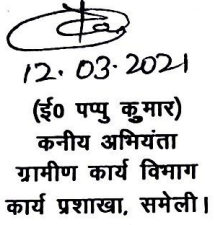 12.03.2021
(ई० पप्पु कुमार)
कनीय अभियंता
ग्रामीण कार्य विभाग
कार्य प्रशाखा, समेली।